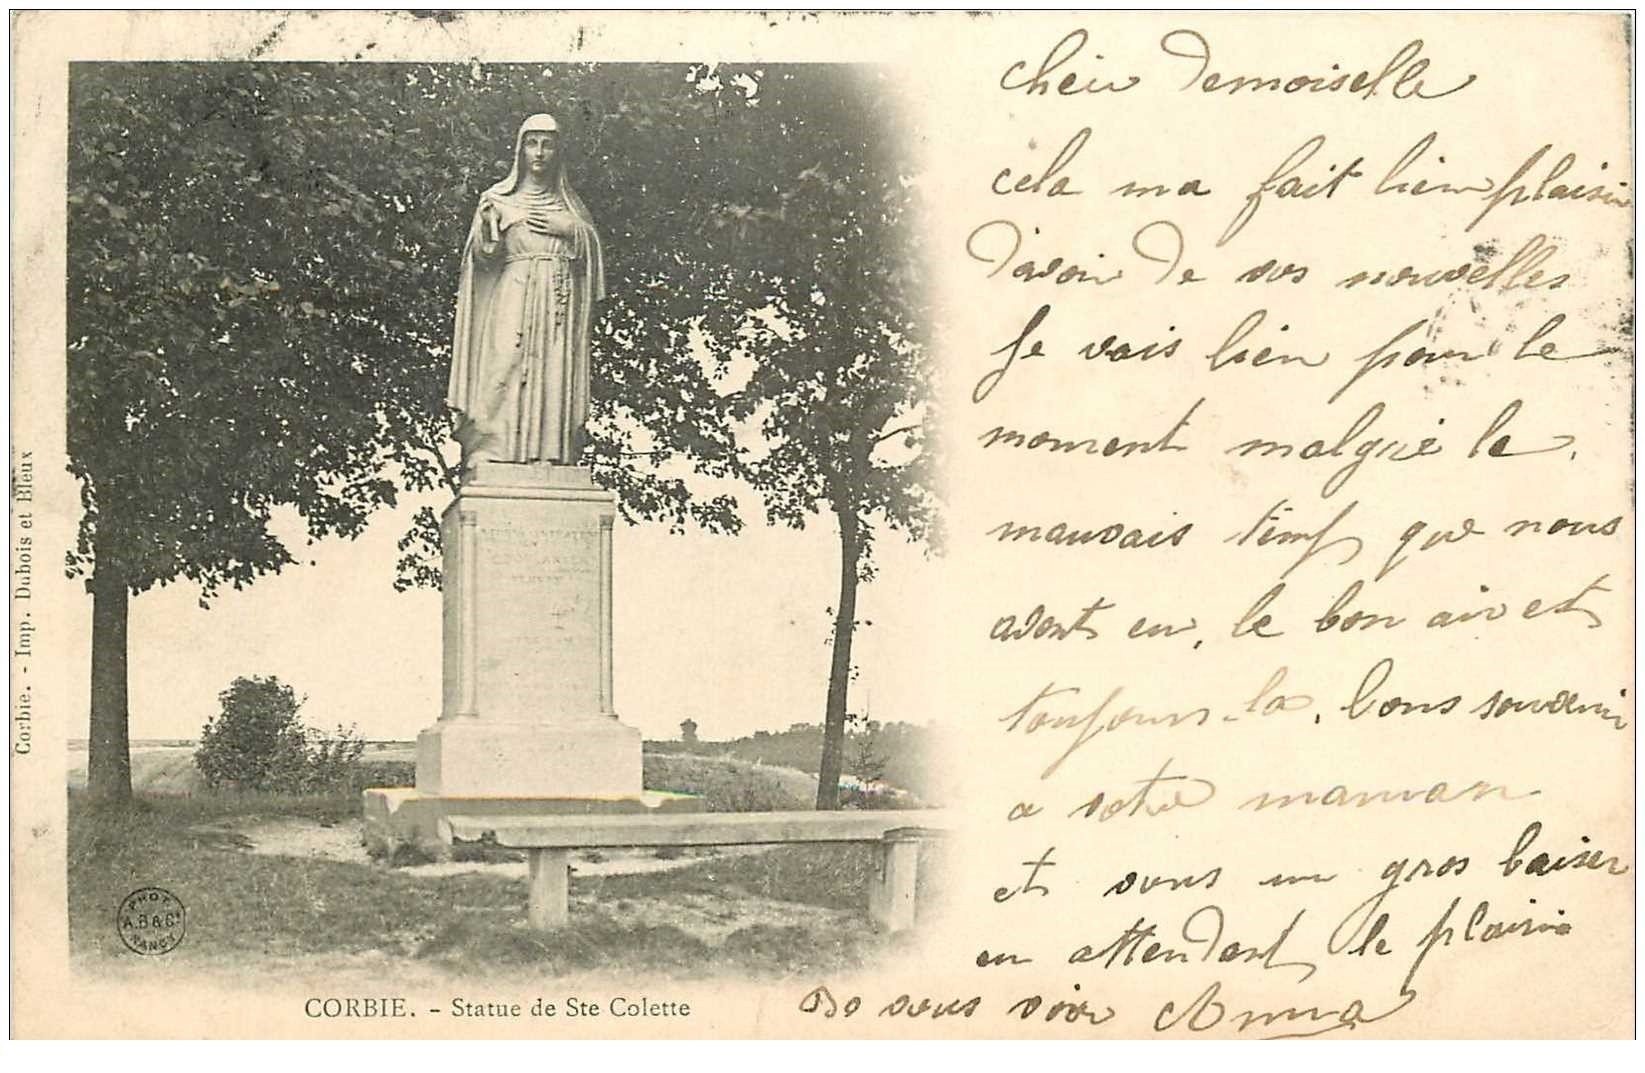 cheir Demoiselle
cela ma fait bien plaisir
D'avoir De vos nouvelles
Je vais bien pour le
moment malgré le
mauvais temps que nous
avont eu, le bon air est
toujours la, bons souvenir
a votre maman
et vous un gros baiser
en attendant le plaisir
De vous voir Anna
CORBIE. - Statue de Ste Colette
Corbie. - Imp. Dubois et Bleux
PHOT.
A.B & Cie
NANCY